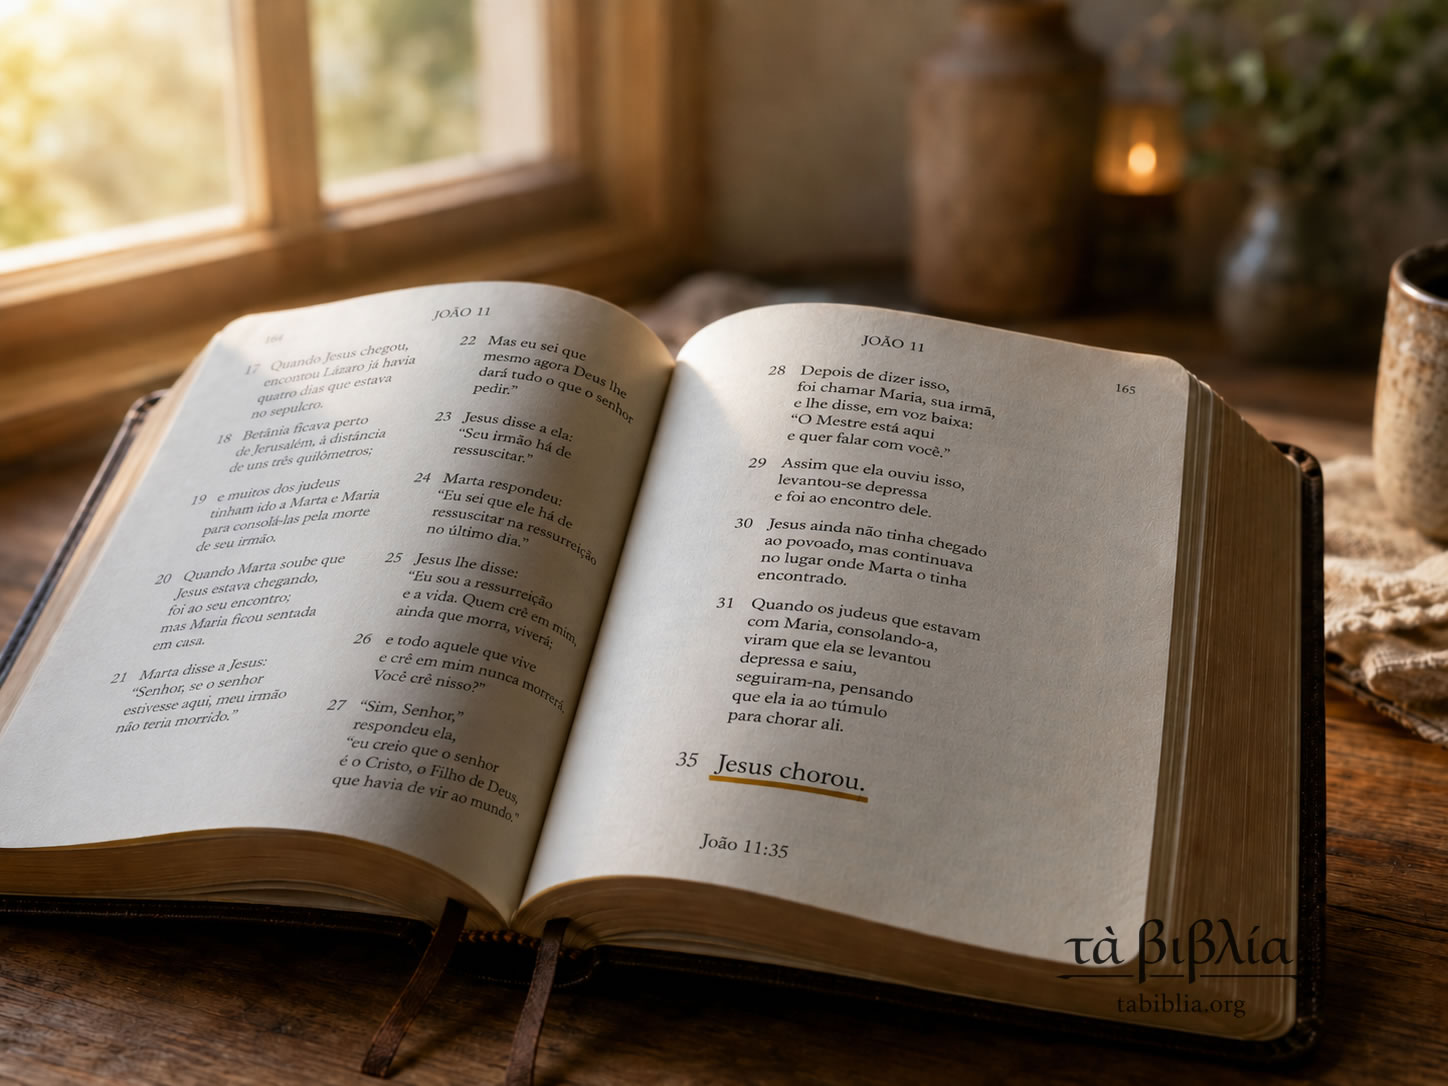 JOÃO 11
164
17 Quando Jesus chegou,
encontou Lázaro já havia
quatro dias que estava
no sepulcro.
18 Betânia ficava perto
de Jerusalém, à distância
de uns três quilômetros;
19 e muitos dos judeus
tinham ido a Marta e Maria
para consolá-las pela morte
de seu irmão.
20 Quando Marta soube que
Jesus estava chegando,
foi ao seu encontro;
mas Maria ficou sentada
em casa.
21 Marta disse a Jesus:
“Senhor, se o senhor
estivesse aqui, meu irmão
não teria morrido.”
22 Mas eu sei que
mesmo agora Deus lhe
dará tudo o que o senhor
pedir.”
23 Jesus disse a ela:
“Seu irmão há de
ressuscitar.”
24 Marta respondeu:
“Eu sei que ele há de
ressuscitar na ressurreição
no último dia.”
25 Jesus lhe disse:
“Eu sou a ressurreição
e a vida. Quem crê em mim,
ainda que morra, viverá;
26 e todo aquele que vive
e crê em mim nunca morrerá.
Você crê nisso?”
27 “Sim, Senhor,”
respondeu ela,
“eu creio que o senhor
é o Cristo, o Filho de Deus,
que havia de vir ao mundo.”
JOÃO 11
165
28 Depois de dizer isso,
foi chamar Maria, sua irmã,
e lhe disse, em voz baixa:
“O Mestre está aqui
e quer falar com você.”
29 Assim que ela ouviu isso,
levantou-se depressa
e foi ao encontro dele.
30 Jesus ainda não tinha chegado
ao povoado, mas continuava
no lugar onde Marta o tinha
encontrado.
31 Quando os judeus que estavam
com Maria, consolando-a,
viram que ela se levantou
depressa e saiu,
seguiram-na, pensando
que ela ia ao túmulo
para chorar ali.
35 Jesus chorou.
João 11:35
τὰ βιβλία
tabiblia.org